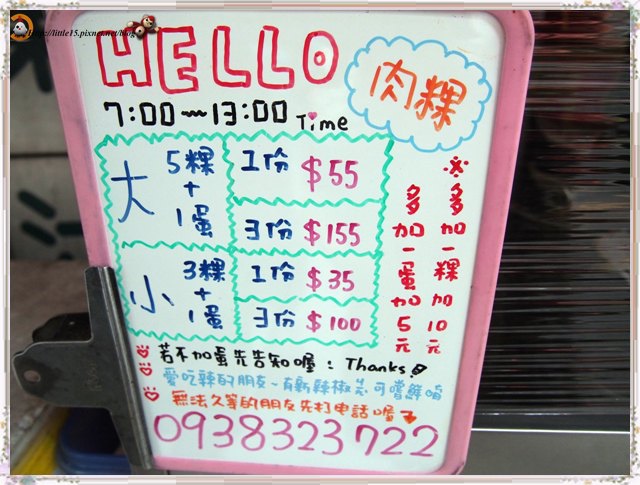 http://little15.pixnet.net/blog
HELLO
7:00~13:00 Time
肉粿
大
5粿
+
1蛋
1份 $55
3份 $155
小
3粿
+
1蛋
1份 $35
3份 $100
※多加一粿加10元
多加一蛋加5元
若不加蛋先告知喔:Thanks!
愛吃辣的朋友~有新辣椒 可嚐鮮唷
無法久等的朋友先打電話喔
0938323722